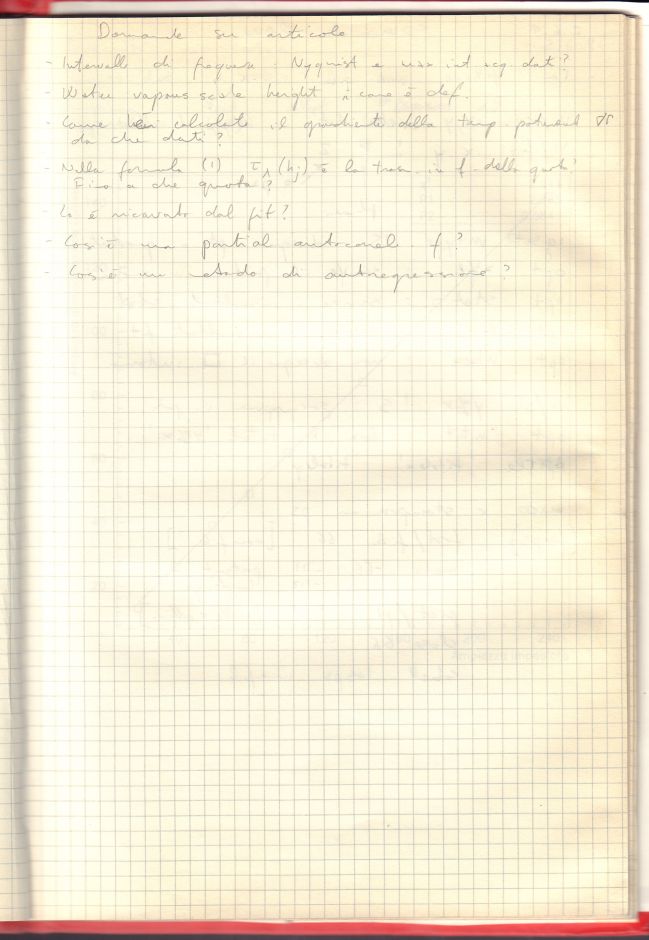 Domande su articolo
- Intervalli di frequenze : Nyquist e max int acq. dati?
- Water vapour scale height : come è def.
- Come vien calcolato il gradiente della temp potenziale
da che dati?
- Nella formula (1) τλ(hj) è la trasm in f. della quota?
Fino a che quota?
- Co è ricavato dal fit?
- Cos'è una partial autocorrel f?
- Cos'è un metodo di autoregressione?